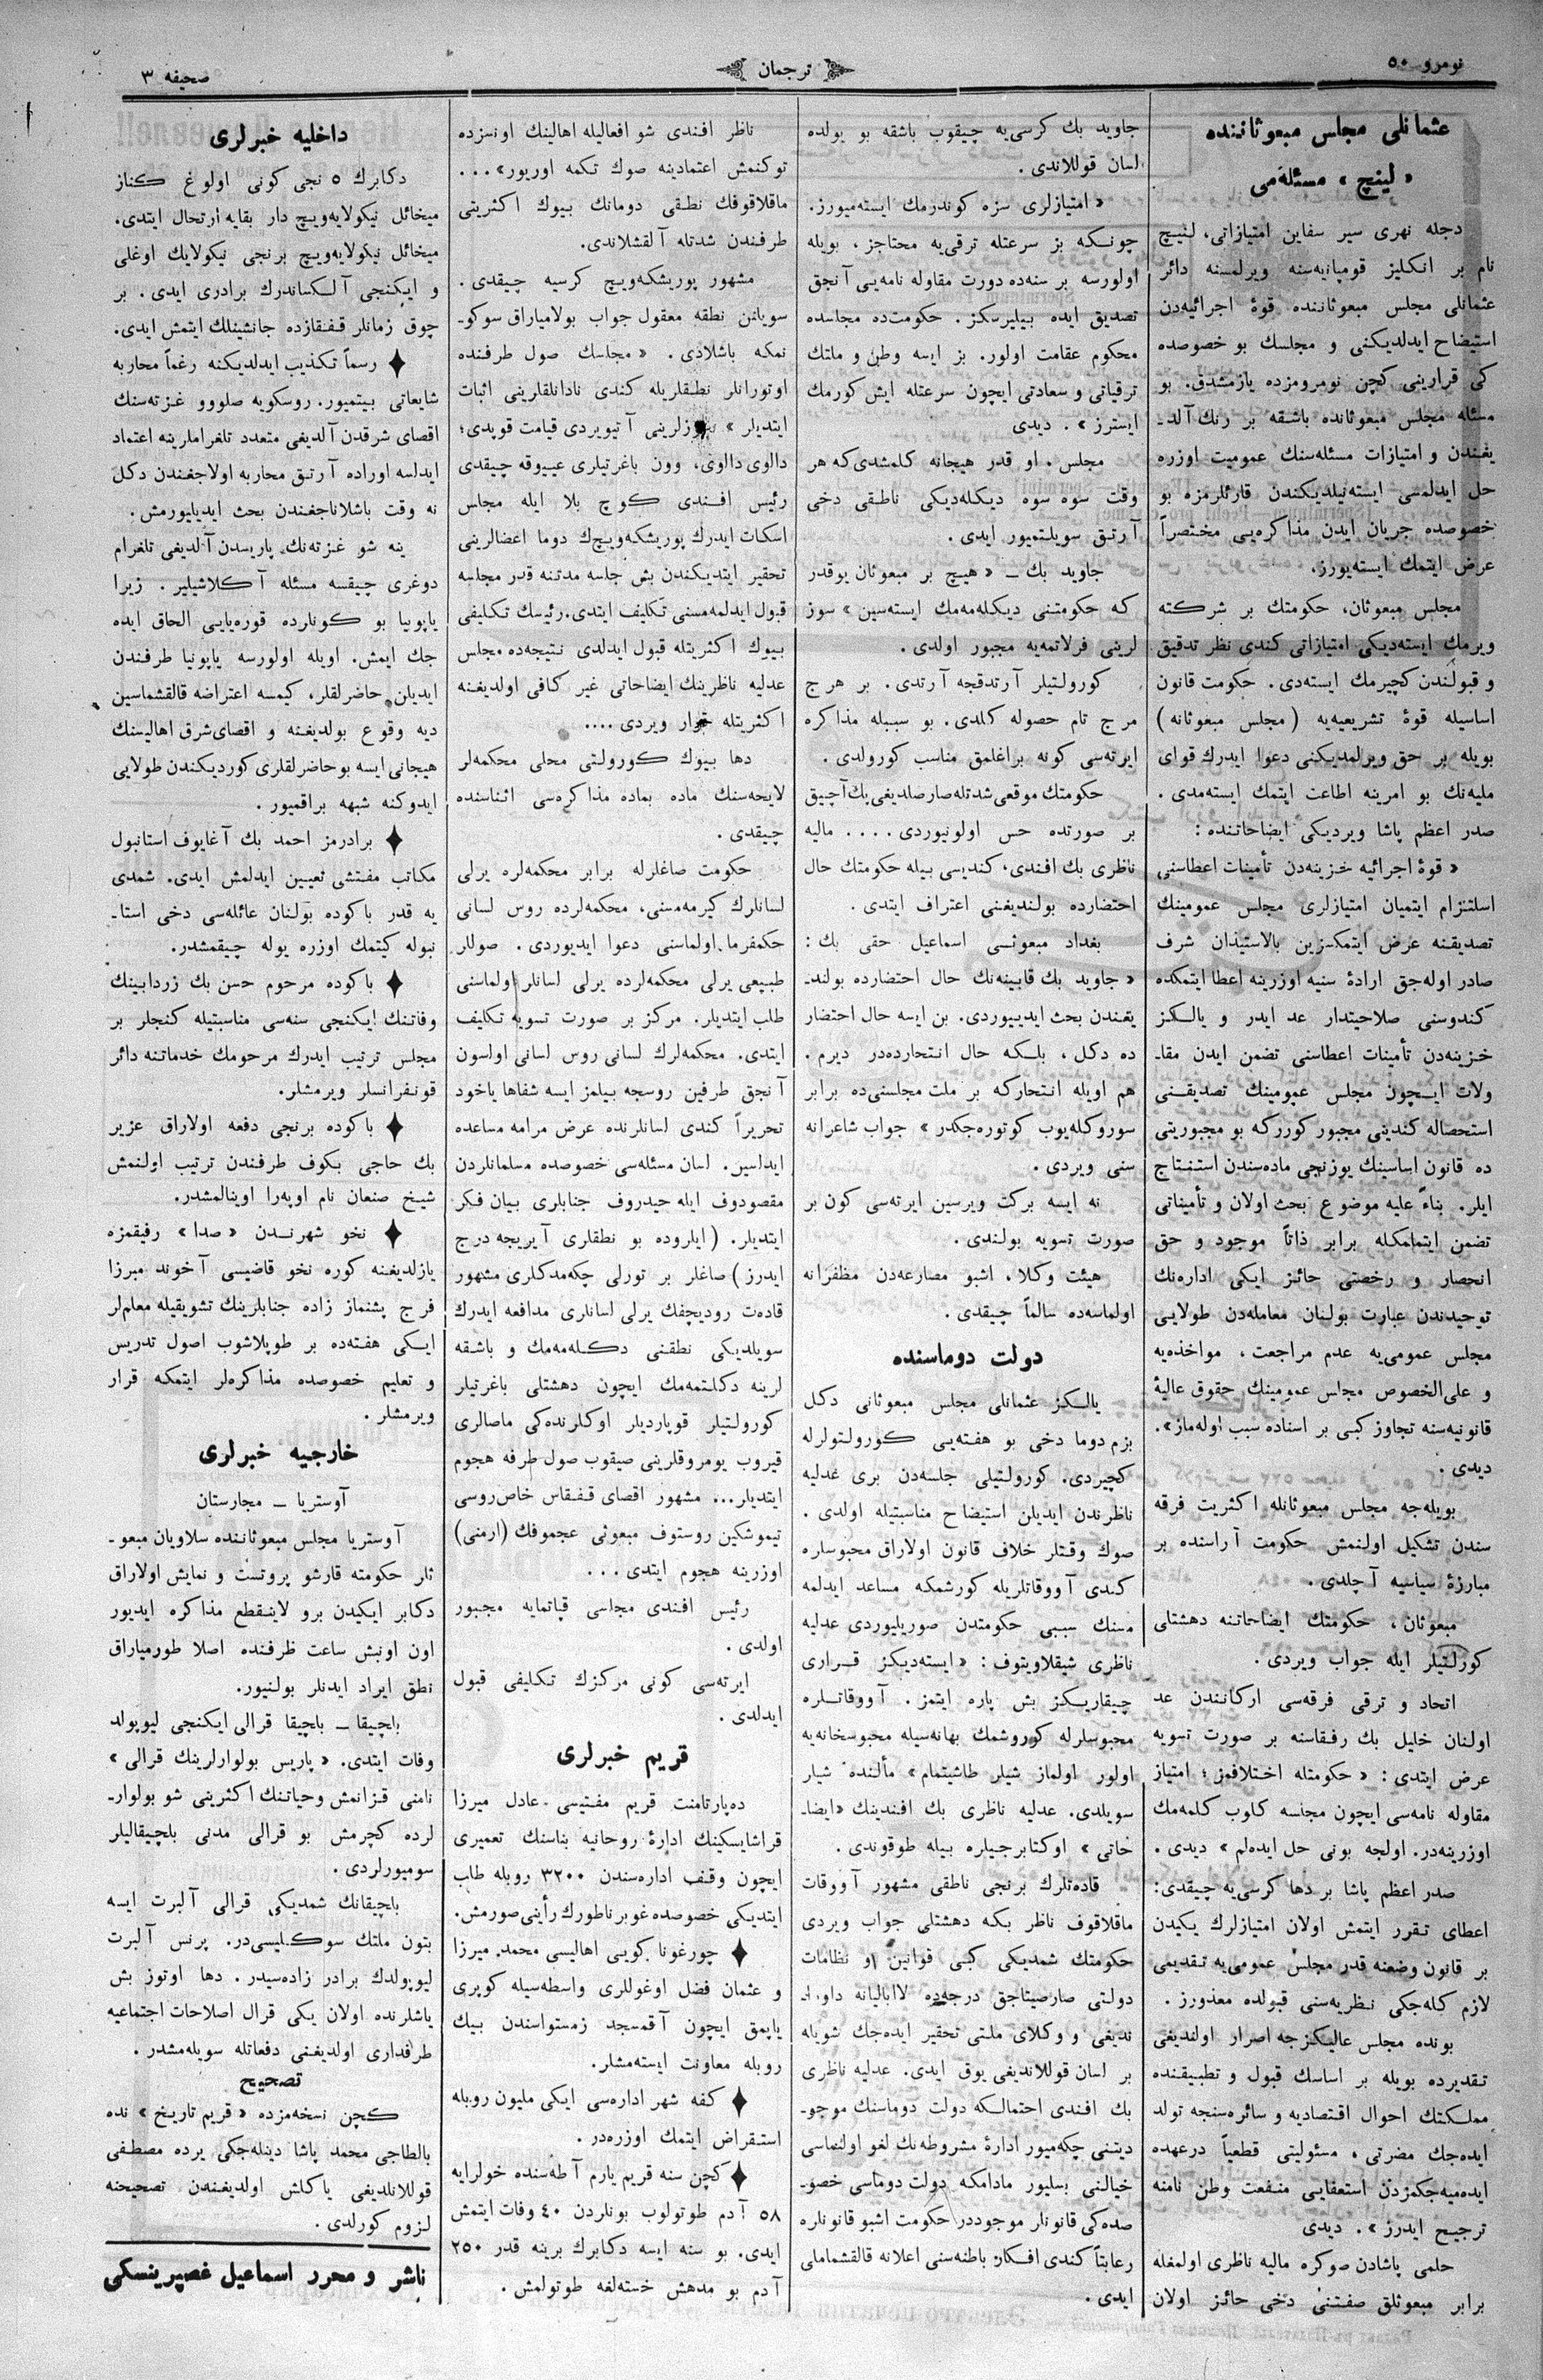 نومرو ٥٠
ترجمان
صحيفه ٣
عثمانلى مجلس مبعوثاننده
« لينچ » مسئله‌مى
دجله نهرى سير سفاين امتيازاتى، لنيچ
نام بر انكليز قومپانيه‌سنه ويرلمسنه دائر
عثمانلى مجلس مبعوثاننده قوۀ اجرائيه‌دن
استيضاح ايدلديكنى و مجلسك بو خصوصده
كى قرارينى كچن نومرومزده يازمشدق. بو
مسئله مجلس مبعوثانده باشقه بر رنك آلد-
يغندن و امتيازات مسئله‌سنك عموميت اوزره
حل ايدلمسى ايسته‌نيلديكندن قارئلرمزه بو
خصوصده جريان ايدن مذاكره‌يى مختصراً
عرض ايتمك ايسته‌يورز.
مجلس مبعوثان، حكومتك بر شركته
ويرمك ايسته‌ديكى امتيازاتى كندى نظر تدقيق
و قبولندن كچيرمك ايسته‌دى. حكومت قانون
اساسيله قوۀ تشريعيه‌يه (مجلس مبعوثانه)
بويله بر حق ويرلمديكنى دعوا ايدرك قواى
مليه‌نك بو امرينه اطاعت ايتمك ايسته‌مدى.
صدر اعظم پاشا ويرديكى ايضاحاتنده:
« قوۀ اجرائيه خزينه‌دن تأمينات اعطاسنى
استلزام ايتميان امتيازلرى مجلس عمومينك
تصديقنه عرض ايتمكسزين بالاستيذان شرف
صادر اوله‌جق ارادۀ سنيه اوزرينه اعطا ايتمكده
كندوسنى صلاحيتدار عد ايدر و يالكز
خزينه‌دن تأمينات اعطاسنى تضمن ايدن مقا-
ولات ايچون مجلس عمومينك تصديقنى
استحصاله كندينى مجبور كوررکه بو مجبوريتى
ده قانون اساسينك يوزنجى ماده‌سندن استنتاج
ايلر. بناءً عليه موضوع بحث اولان و تأميناتى
تضمن ايتمامكله برابر ذاتاً موجود و حق
انحصار و رخصتى حائز ايكى اداره‌نك
توحيدندن عبارت بولنان معامله‌دن طولايى
مجلس عمومى‌يه عدم مراجعت، مواخذه‌يه
و على‌الخصوص مجلس عمومينك حقوق عاليۀ
قانونيه‌سنه تجاوز كبى بر اسناده سبب اوله‌ماز».
ديدى.
بويله‌جه مجلس مبعوثانله اكثريت فرقه
سندن تشكيل اولنمش حكومت آراسنده بر
مبارزۀ سياسيه آچلدى.
مبعوثان، حكومتك ايضاحاتنه دهشتلى
كورلتيلر ايله جواب ويردى.
اتحاد و ترقى فرقه‌سى اركانندن عد
اولنان خليل بك رفقاسنه بر صورت تسويه
عرض ايتدى: « حكومتله اختلافمز؛ امتياز
مقاوله نامه‌سى ايچون مجلسه كلوب كلمه‌مك
اوزرينه‌در. اولجه بونى حل ايده‌لم » ديدى.
صدر اعظم پاشا بر دها كرسى‌يه چيقدى:
اعطاى تقرر ايتمش اولان امتيازلرك يكيدن
بر قانون وضعنه قدر مجلس عمومى‌يه تقديمى
لازم كله‌جكى نظريه‌سنى قبولده معذورز.
بونده مجلس عاليكزجه اصرار اولنديغى
تقديرده بويله بر اساسك قبول و تطبيقنده
مملكتك احوال اقتصاديه و سائره‌سنجه تولد
ايده‌جك مضرتى، مسئوليتى قطعياً درعهده
ايده‌ميه‌جكمزدن استعفايى منفعت وطن نامنه
ترجيح ايدرز». ديدى
حلمى پاشادن صوكره ماليه ناظرى اولمغله
برابر مبعوثلق صفتنى دخى حائز اولان
جاويد بك كرسى‌يه چيقوب باشقه بو يولده
لسان قوللاندى.
« امتيازلرى سزه كوندرمك ايسته‌ميورز.
چونكه بز سرعتله ترقى‌يه محتاجز، بويله
اولورسه بر سنه‌ده دورت مقاوله نامه‌يى آنجق
تصديق ايده بيليرسكز. حكومت‌ده مجلسده
محكوم عقامت اولور. بز ايسه وطن و ملتك
ترقياتى و سعادتى ايچون سرعتله ايش كورمك
ايسترز». ديدى
مجلس، او قدر هيجانه كلمشدى كه هر
وقت سوه سوه ديكله‌ديكى ناطقى دخى
آرتق سويلتميور ايدى.
جاويد بك ـ « هيچ بر مبعوثان يوقدر
كه حكومتنى ديكله‌مه‌مك ايسته‌سين » سوز
لرينى فرلاتمه‌يه مجبور اولدى.
كورولتيلر آرتدقجه آرتدى. بر هرج
مرج تام حصوله كلدى. بو سببله مذاكره
ايرته‌سى كونه براغلمق مناسب كورولدى.
حكومتك موقعى شدتله صارصلديغى پك آچيق
بر صورتده حس اولونيوردى.... ماليه
ناظرى بك افندى، كنديسى بيله حكومتك حال
احتضارده بولنديغنى اعتراف ايتدى.
بغداد مبعوثى اسماعيل حقى بك:
« جاويد بك قابينه‌نك حال احتضارده بولند-
يغندن بحث ايدييوردى. بن ايسه حال احتضار
ده دكل، بلكه حال انتحارده‌در ديرم.
هم اويله انتحاركه بر ملت مجلسنى‌ده برابر
سوروكله‌يوب كوتوره‌جكدر» جواب شاعرانه
سنى ويردى.
نه ايسه بركت ويرسين ايرته‌سى كون بر
صورت تسويه بولندى.
هيئت وكلا، اشبو مصارعه‌دن مظفرانه
اولماسه‌ده سالماً چيقدى.
دولت دوماسنده
يالكز عثمانلى مجلس مبعوثانى دكل
بزم دوما دخى بو هفته‌يى كورولتولرله
كچيردى. كورولتيلى جلسه‌دن برى عدليه
ناظرندن ايديلن استيضاح مناسبتيله اولدى.
صوك وقتلر خلاف قانون اولاراق محبوسلره
كندى آووقاتلريله كورشمكه مساعد ايدلمه
مسنك سببى حكومتدن صوريليوردى عدليه
ناظرى شيقلاويتوف: « ايسته‌ديكز قرارى
چيقاريكز بش پاره ايتمز. آووقاتلره
محبوسلرله كوروشمك بهانه‌سيله محبوسخانه‌يه
اولور اولماز شيلر طاشيتمام» مألنده شيلر
سويلدى. عدليه ناظرى بك افندينك «ايضا-
حاتى» اوكتابرجيلره بيله طوقوندى.
قاده‌تلرك برنجى ناطقى مشهور آووقات
ماقلاقوف ناظر بكه دهشتلى جواب ويردى
حكومتك شمديكى كبى قوانين و نظامات
دولتى صارصيتاجق درجه‌ده لاابالیانه داورا-
نديغى و وكلاى ملتى تحقير ايده‌جك شويله
بر لسان قوللانديغى يوق ايدى. عدليه ناظرى
بك افندى احتمالكه دولت دوماسنك موجو-
ديتنى چكه‌ميور ادارۀ مشروطه‌نك لغو اولنماسى
خيالنى بسليور مادامكه دولت دوماسى خصو-
صده‌كى قانونلر موجوددر حكومت اشبو قانونلره
رعايتاً كندى افكار باطنه‌سنى اعلانه قالقشماملى
ايدى.
ناظر افندى شو افعاليله اهالينك اونسزده
توكنمش اعتمادينه صوك تكمه اوريور»...
ماقلاقوفك نطقى دومانك بيوك اكثريتى
طرفندن شدتله آلقشلاندى.
مشهور پوريشكه‌ويچ كرسيه چيقدى.
سويلنن نطقه معقول جواب بولامياراق سوكو-
نمكه باشلادى. « مجلسك صول طرفنده
اوتورانلر نطقلريله كندى نادانلقلرينى اثبات
ايتديلر » آتيويردى قيامت قوپدى؛
دالوى دالوى، وون باغرتيلرى عيوقه چيقدى
رئيس افندى كوچ بلا ايله مجلس
اسكات ايدرك پوريشكه‌ويچ‌ك دوما اعضالرينى
تحقير ايتديكندن بش جلسه مدتنه قدر مجلسه
قبول ايدلمه‌مسنى تكليف ايتدى. رئيسك تكليفى
بيوك اكثريتله قبول ايدلدى نتيجه‌ده مجلس
عدليه ناظرينك ايضاحاتى غير كافى اولديغنه
اكثريتله قرار ويردى....
دها بيوك كورولتى محلى محكمه‌لر
لايحه‌سنك ماده بماده مذاكره‌سى اثناسنده
چيقدى.
حكومت صاغلرله برابر محكمه‌لره يرلى
لسانلرك كيرمه‌مسنى، محكمه‌لرده روس لسانى
حكمفرما اولماسنى دعوا ايديوردى. صوللر
طبيعى يرلى محكمه‌لرده يرلى لسانلر اولماسنى
طلب ايتديلر. مركز بر صورت تسويه تكليف
ايتدى. محكمه‌لرك لسانى روس لسانى اولسون
آنجق طرفين روسجه بيلمز ايسه شفاها ياخود
تحريراً كندى لسانلرنده عرض مرامه مساعده
ايدلسين. لسان مسئله‌سى خصوصده مسلمانلردن
مقصودوف ايله حيدروف جنابلرى بيان فكر
ايتديلر. (ايلروده بو نطقلرى آيريجه درج
ايدرز) صاغلر بر تورلى چكه‌مدكلرى مشهور
قاده‌ت روديچفك يرلى لسانلرى مدافعه ايدرك
سويلديكى نطقنى دكله‌مه‌مك و باشقه
لرينه دكلتمه‌مك ايچون دهشتلى باغرتيلر
كورولتيلر قوپارديلر اوكلرنده‌كى ماصالرى
قيروب يومروقلرينى صيقوب صول طرفه هجوم
ايتديلر... مشهور اقصاى قفقاس خاص‌روسى
تيموشكين روستوف مبعوثى عجموفك (ارمنى)
اوزرينه هجوم ايتدى...
رئيس افندى مجلسى قپاتمايه مجبور
اولدى.
ايرته‌سى كونى مركزك تكليفى قبول
ايدلدى.
قريم خبرلرى
ده‌پارتامنت قريم مفتيسى عادل ميرزا
قراشايسكينك ادارۀ روحانيه بناسنك تعميرى
ايچون وقف اداره‌سندن ٣٢٠٠ روبله طلب
ايتديكى خصوصده غوبرناطورك رأينى صورمش.
♦ چورغونا كويى اهاليسى محمد ميرزا
و عثمان فضل اوغوللرى واسطه‌سيله كوپرى
ياپمق ايچون آقمسجد زمستواسندن بيك
روبله معاونت ايسته‌مشلر.
♦ كفه شهر اداره‌سى ايكى مليون روبله
استقراض ايتمك اوزره‌در.
♦ كچن سنه قريم يارم آطه‌سنده خولرايه
٥٨ آدم طوتولوب بونلردن ٤٠ وفات ايتمش
ايدى. بو سنه ايسه دكابرك برينه قدر ٢٥٠
آدم بو مدهش خسته‌لغه طوتولمش.
داخليه خبرلرى
دكابرك ٥ نجى كونى اولوغ كناز
ميخائل نيكولايه‌ويچ دار بقايه ارتحال ايتدى.
ميخائل نيكولايه‌ويچ برنجى نيكولايك اوغلى
و ايكنجى آلكساندرك برادرى ايدى. بر
چوق زمانلر قفقازده جانشينلك ايتمش ايدى.
♦ رسماً تكذيب ايدلديكنه رغماً محاربه
شايعاتى بيتميور. روسكويه صلووو غزته‌سنك
اقصاى شرقدن آلديغى متعدد تلغراملرينه اعتماد
ايدلسه اوراده آرتق محاربه اولاجغندن دكل
نه وقت باشلاناجغندن بحث ايديليورمش.
ينه شو غزته‌نك پاريسدن آلديغى تلغرام
دوغرى چيقسه مسئله آكلاشيلير. زيرا
ياپونيا بو كونلرده قوره‌يايى الحاق ايده
جك ايمش. اويله اولورسه ياپونيا طرفندن
ايديلن حاضرلقلر، كيمسه اعتراضه قالقشماسين
ديه وقوع بولديغنه و اقصاى شرق اهاليسنك
هيجانى ايسه بو حاضرلقلرى كورديكندن طولايى
ايدوكنه شبهه براقميور.
♦ برادرمز احمد بك آغايوف استانبول
مكاتب مفتشى تعيين ايدلمش ايدى. شمدى
يه قدر باكوده بولنان عائله‌سى دخى استا-
نبوله كيتمك اوزره يوله چيقمشدر.
♦ باكوده مرحوم حسن بك زردابينك
وفاتنك ايكنجى سنه‌سى مناسبتيله كنجلر بر
مجلس ترتيب ايدرك مرحومك خدماتنه دائر
قونفرانسلر ويرمشلر.
♦ باكوده برنجى دفعه اولاراق عزير
بك حاجى بكوف طرفندن ترتيب اولنمش
شيخ صنعان نام اوپه‌را اوينالمشدر.
♦ نخو شهرندن « صدا » رفيقمزه
يازلديغنه كوره نخو قاضيسى آخوند ميرزا
فرج پشنماز زاده جنابلرينك تشويقيله معلملر
ايكى هفته‌ده بر طوپلاشوب اصول تدريس
و تعليم خصوصده مذاكره‌لر ايتمكه قرار
ويرمشلر.
خارجيه خبرلرى
آوستريا ـ مجارستان
آوستريا مجلس مبعوثاننده سلاويان مبعو-
ثلر حكومته قارشو پروتست و نمايش اولاراق
دكابر ايكيدن برو لاينقطع مذاكره ايديور
اون اونبش ساعت ظرفنده اصلا طورمياراق
نطق ايراد ايدنلر بولنيور.
بلچيقا ـ بلچيقا قرالى ايكنجى ليوپولد
وفات ايتدى. « پاريس بولوارلرينك قرالى »
نامنى قزانمش وحياتنك اكثرينى شو بولوار-
لرده كچرمش بو قرالى مدنى بلچيقاليلر
سوميورلردى.
بلچيقانك شمديكى قرالى آلبرت ايسه
بتون ملتك سوكليسى‌در. پرنس آلبرت
ليوپولدك برادر زاده‌سيدر. دها اوتوز بش
ياشلرنده اولان يكى قرال اصلاحات اجتماعيه
طرفدارى اولديغنى دفعاتله سويله‌مشدر.
تصحيح
كچن نسخه‌مزده « قريم تاريخ » نده
بالطاجى محمد پاشا دينله‌جكى يرده مصطفى
قوللانلديغى ياكلش اولديغندن تصحيحنه
لزوم كورلدى.
ناشر و محرر اسماعيل غصپرينسكى